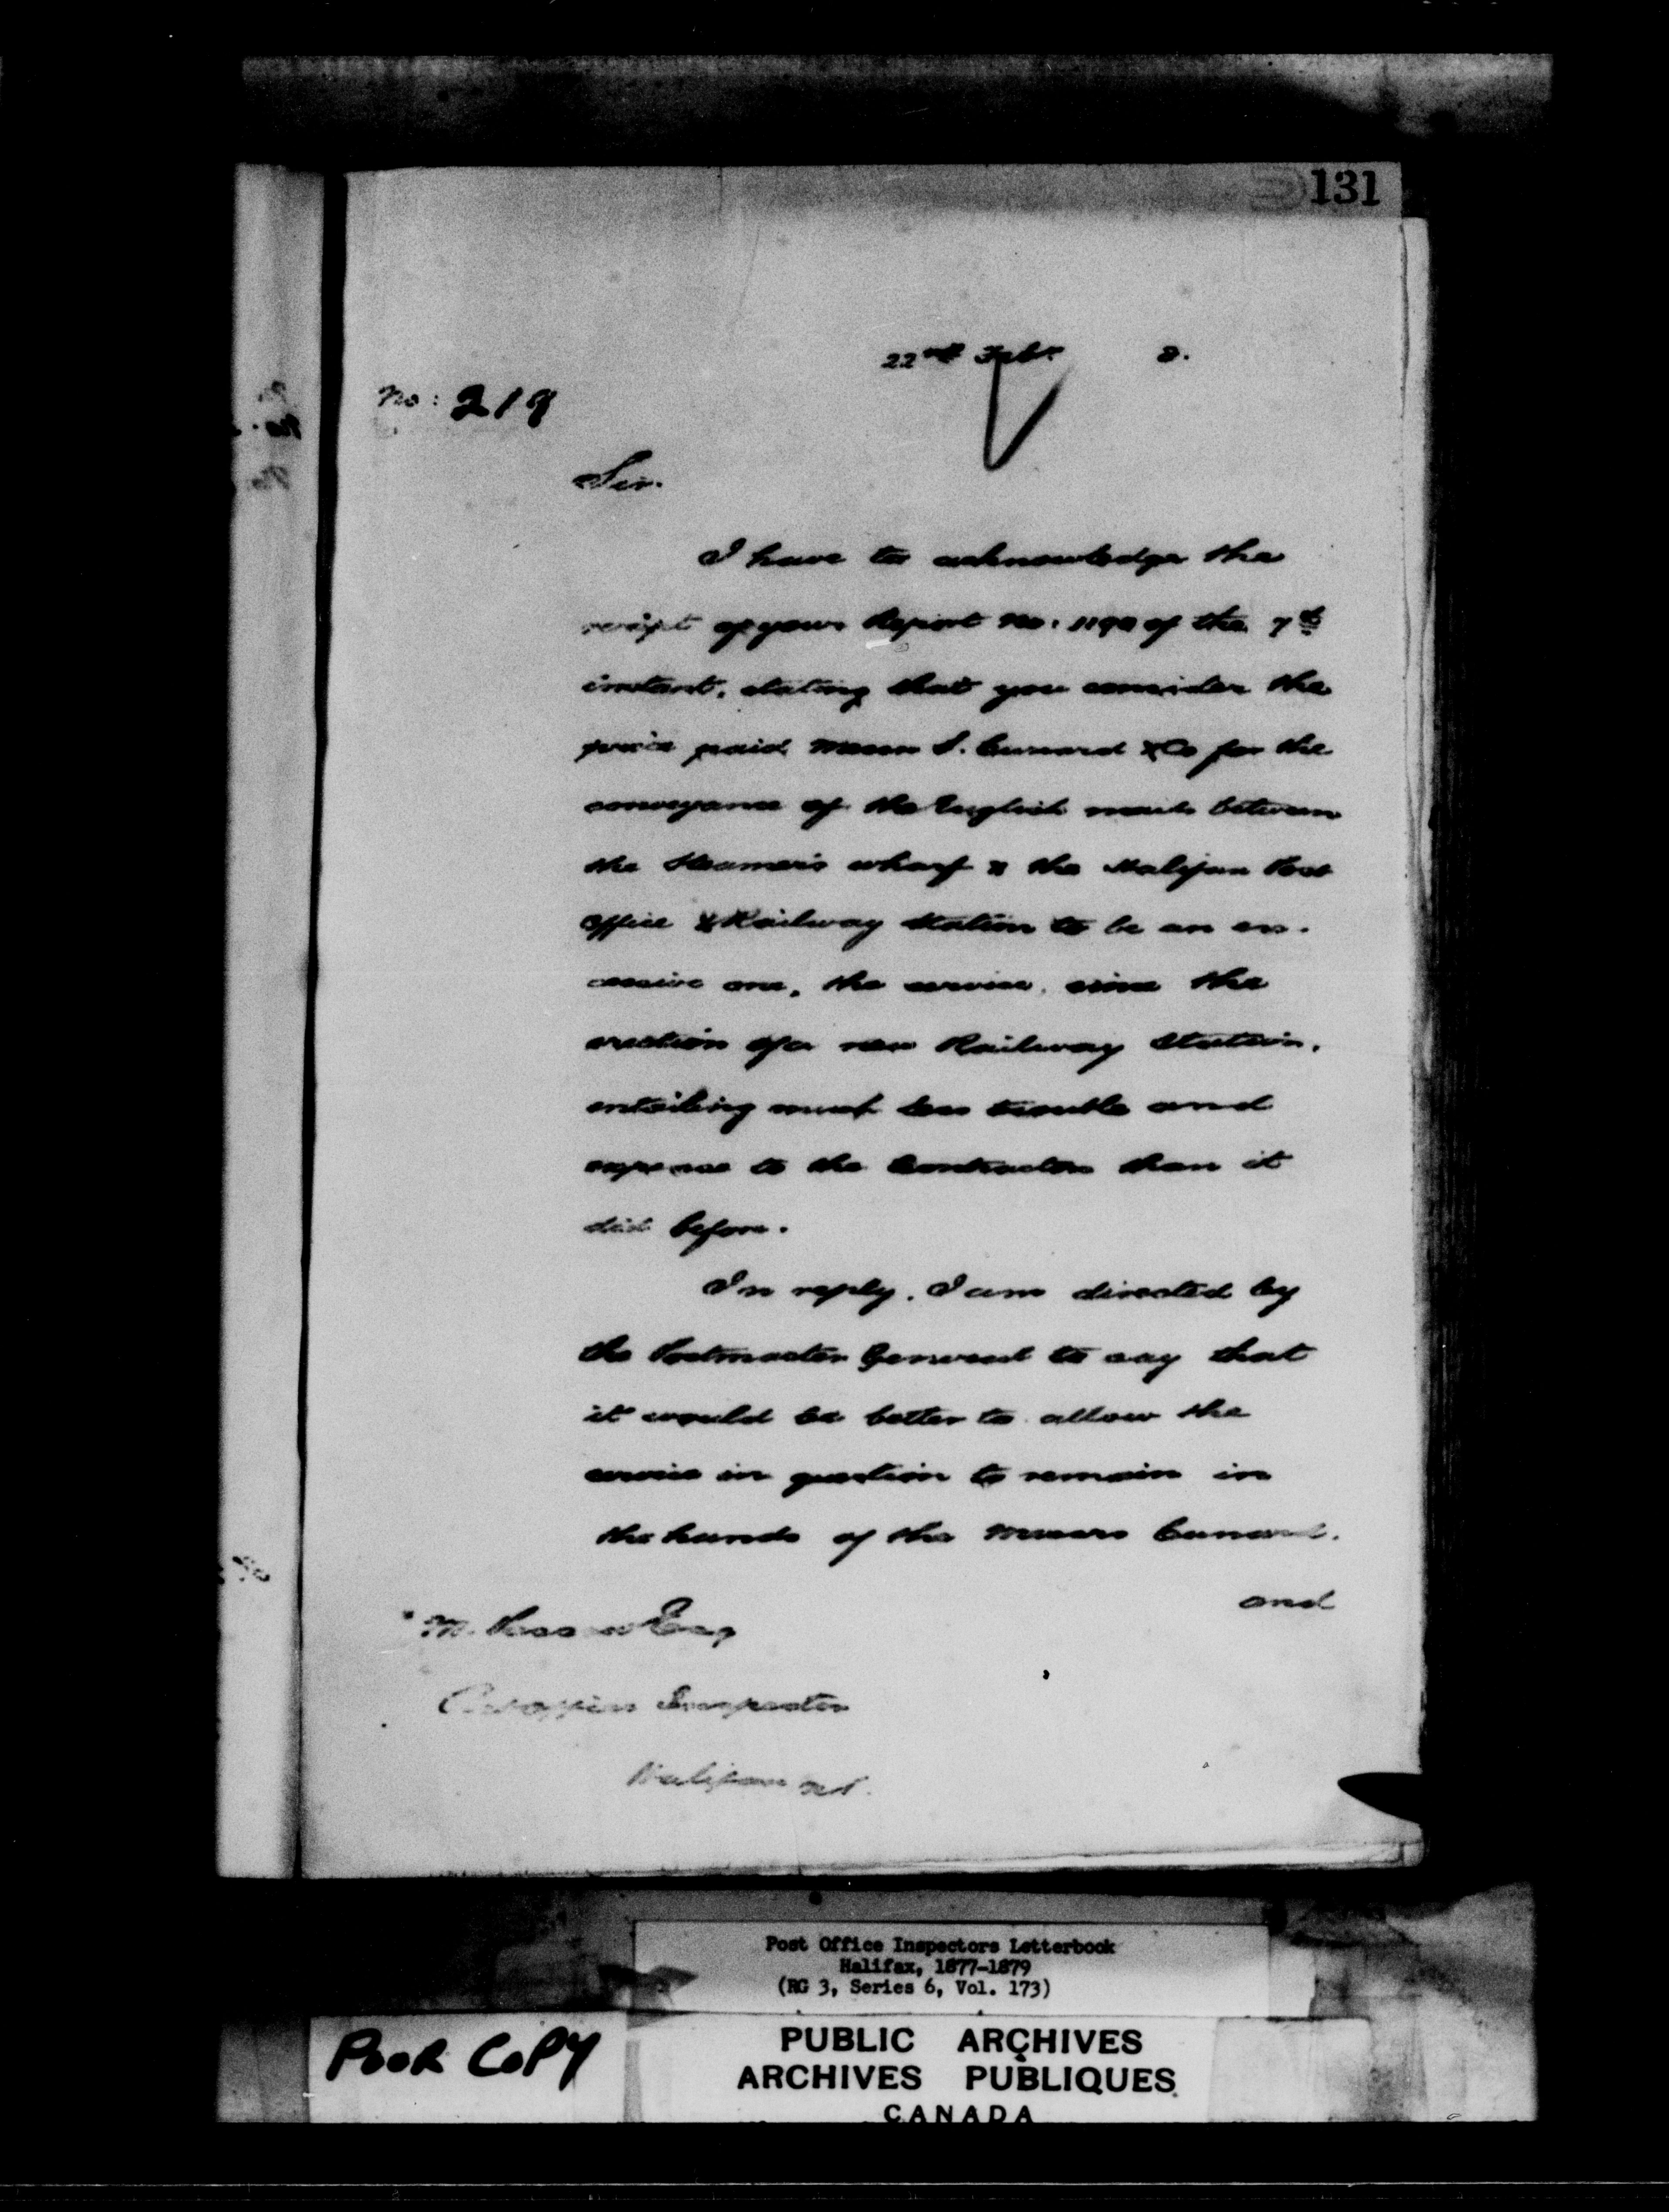 131
22nd Feby. 8.
No: 219
Sir.
I have to acknowledge the
receipt of your Report No: of the 7th
instant, stating that you consider the
price paid Messrs S. Cunard & Co for the
conveyance of the English mails between
the Steamer's wharf & the Halifax Post
Office & Railway Station to be an ex-
cessive one, the service, since the
erection of a new Railway Station,
entailing much less trouble and
expense to the Contractors than it
did before.
In reply, I am directed by
the Postmaster General to say that
it would be better to allow the
service in question to remain in
the hands of the Messrs Cunard,
and
Esq
Post Office Inspector
Halifax N.S.
Post Office Inspectors Letterbook
Halifax, 1877-1879
(RG 3, Series 6, Vol. 173)
POOR COPY
PUBLIC ARCHIVES
ARCHIVES PUBLIQUES
CANADA